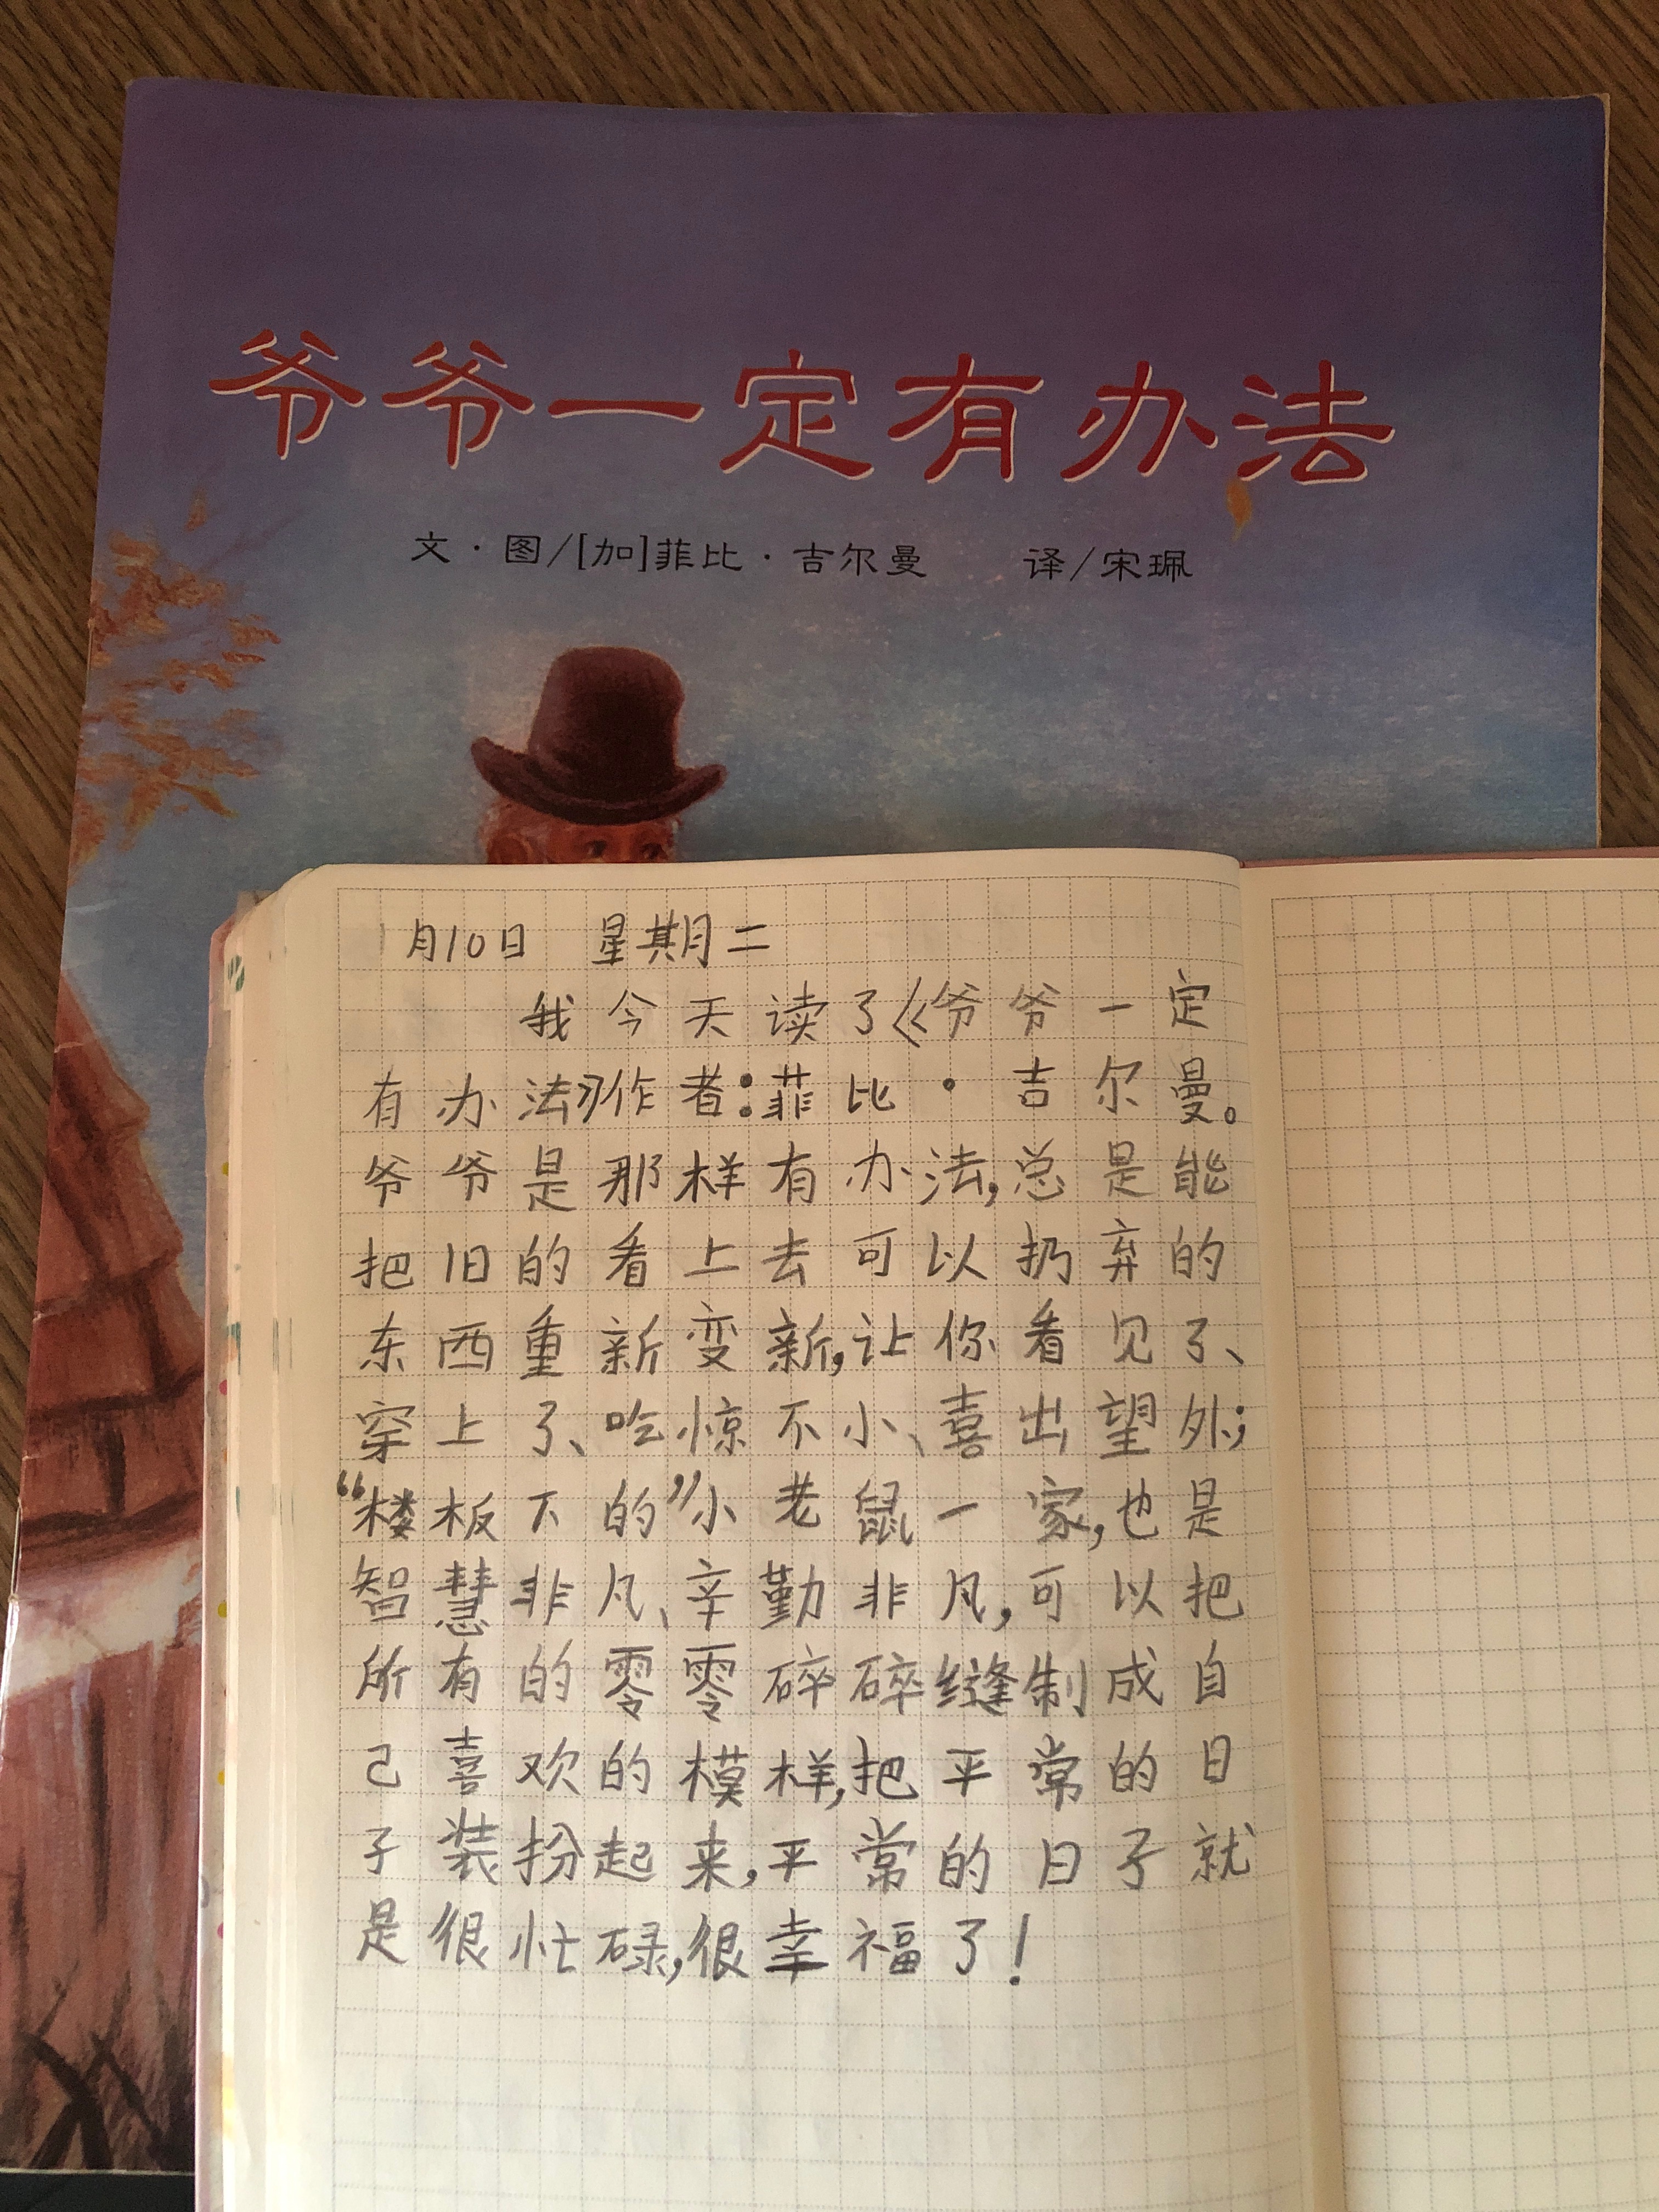 爷爷一定有办法
文·图/[加]菲比·吉尔曼 译/宋珮
1月10日 星期二
我今天读了《爷爷一定
有办法》作者:菲比·吉尔曼。
爷爷是那样有办法,总是能
把旧的看上去可以扔弃的
东西重新变新,让你看见了、
穿上了、吃惊不小、喜出望外;
“楼板下的”小老鼠一家,也是
智慧非凡、辛勤非凡,可以把
所有的零零碎碎缝制成自
己喜欢的模样,把平常的日
子装扮起来,平常的日子就
是很忙碌,很幸福了!